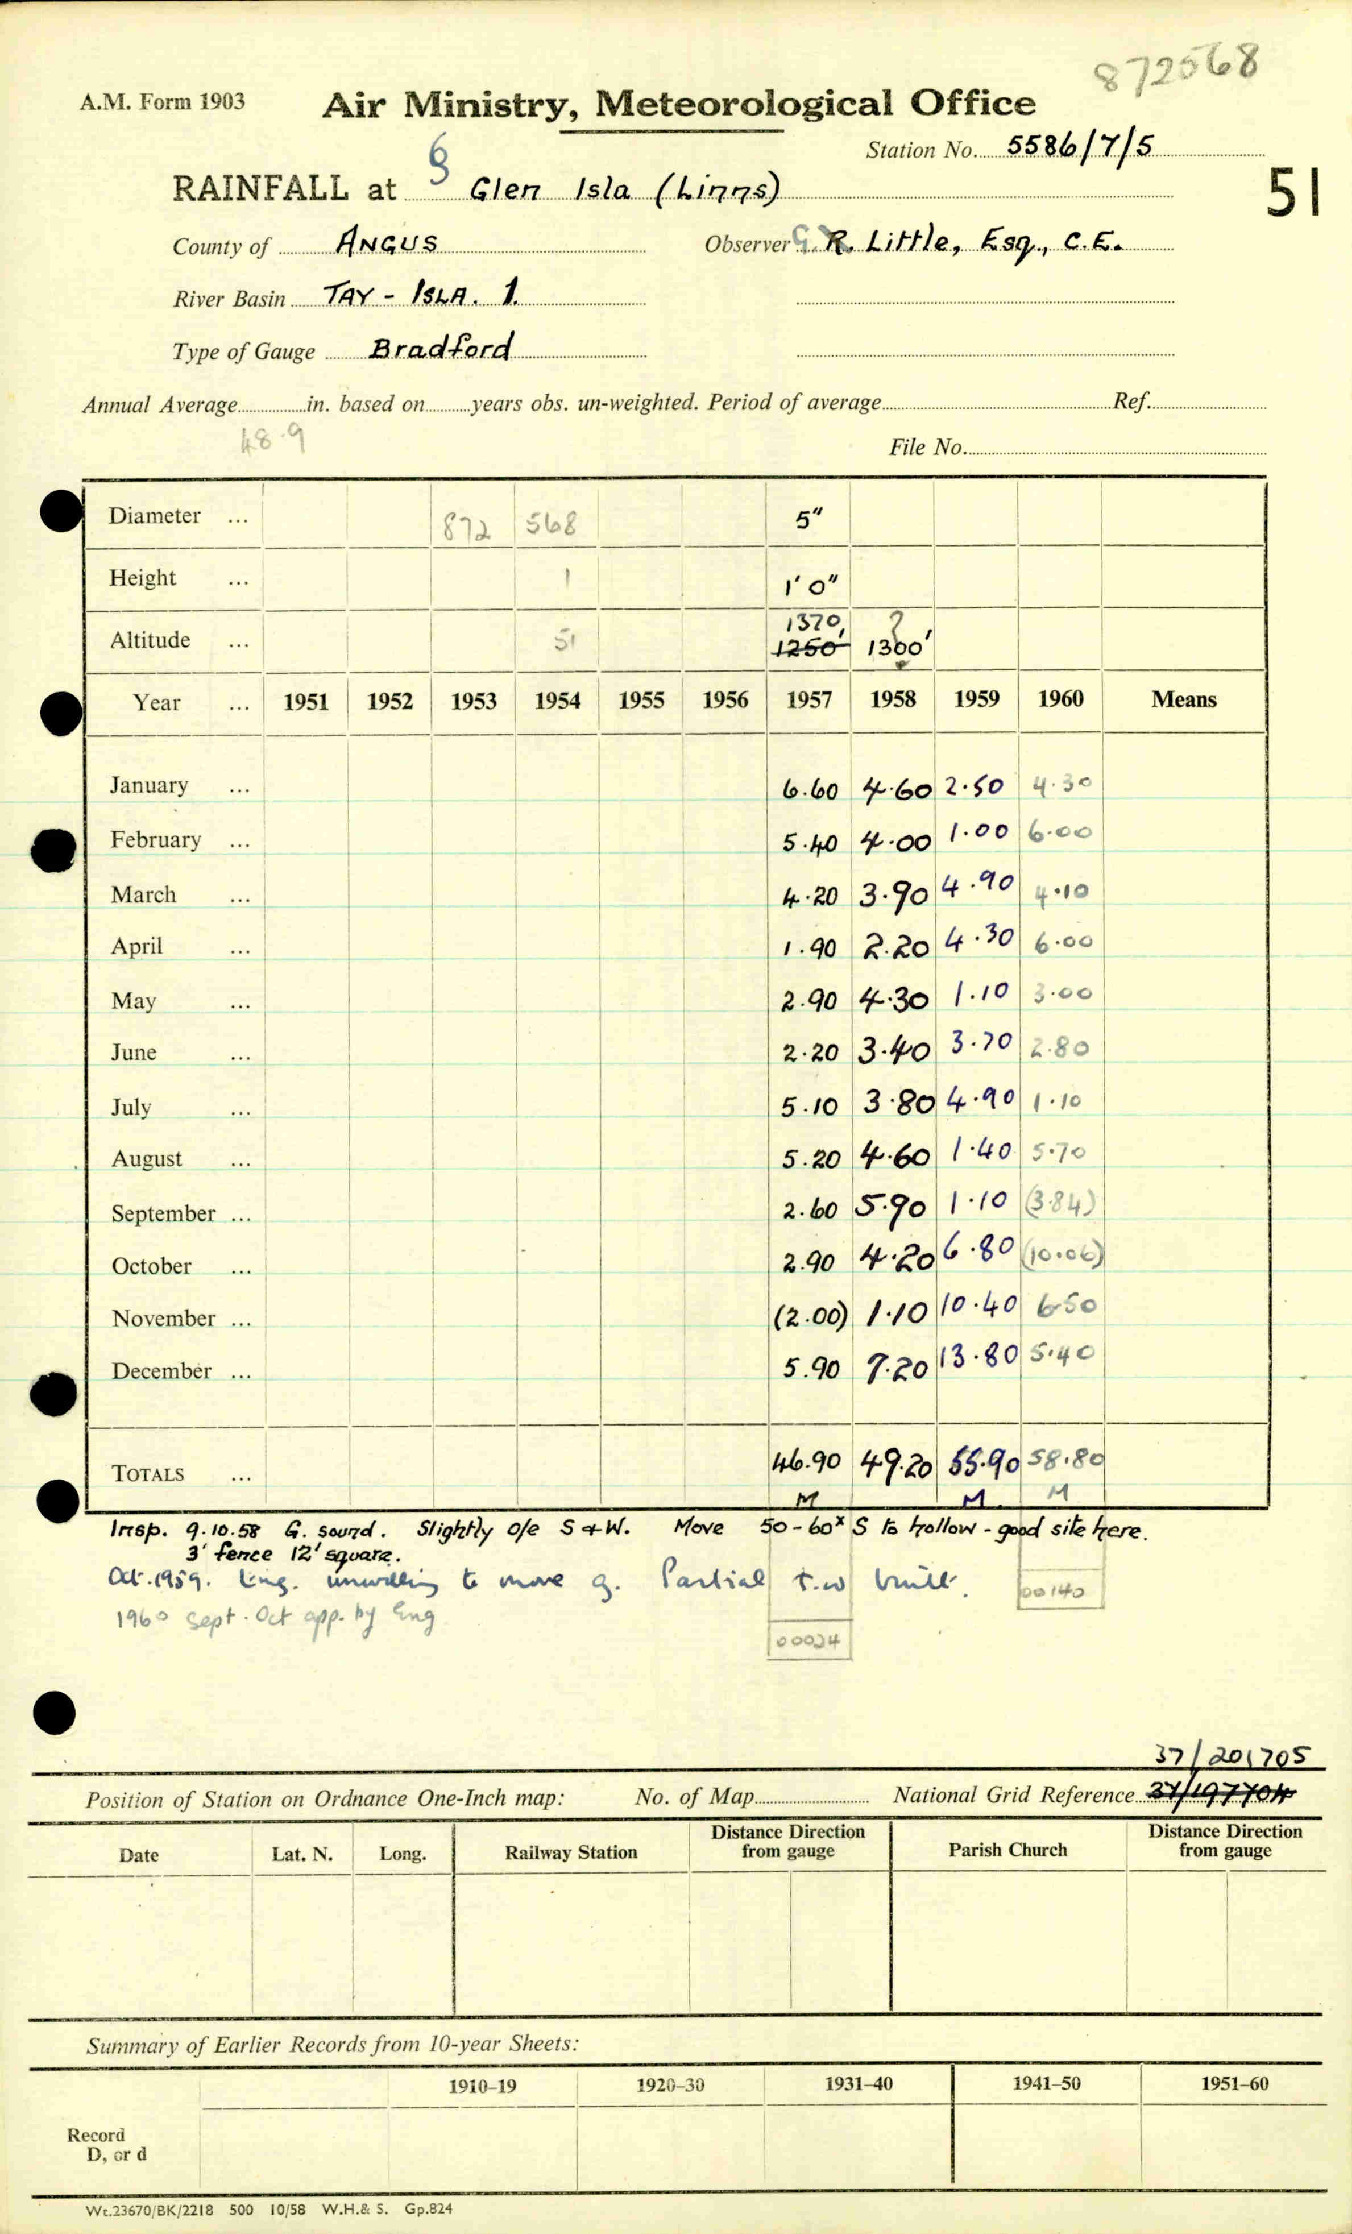 872568
A.M. Form 1903 Air Ministry, Meteorological Office
Station No. 5586/7/5
RAINFALL at Glen Isla (Linns) 51
County of ANGUS Observer G. R. Little, Esq., C.E.
River Basin TAY - ISLA. 1.
Type of Gauge Bradford
Annual Average in. based on years obs. un-weighted. Period of average Ref.
48.9 File No.
Diameter ... 872 568 5"
Height ... 1 1' 0"
1370 ?
Altitude ... 51 1250' 1300'
Year ... 1951 1952 1953 1954 1955 1956 1957 1958 1959 1960 Means
January ... 6.60 4.60 2.50 4.30
February ... 5.40 4.00 1.00 6.00
March ... 4.20 3.90 4.90 4.10
April ... 1.90 2.20 4.30 6.00
May ... 2.90 4.30 1.10 3.00
June ... 2.20 3.40 3.70 2.80
July ... 5.10 3.80 4.90 1.10
August ... 5.20 4.60 1.40 5.70
September ... 2.60 5.90 1.10 (3.84)
October ... 2.90 4.20 6.80 (10.06)
November ... (2.00) 1.10 10.40 6.50
December ... 5.90 7.20 13.80 5.40
TOTALS ... 46.90 49.20 55.90 58.80
M M M
Insp. 9.10.58 G. sound. Slightly o/e S + W. Move 50-60x S to hollow - good site here.
3' fence 12' square.
Oct. 1959. Eng. unwilling to move g. Partial t.w built. 00140
1960 Sept. Oct app. by Eng
00024
37/201705
Position of Station on Ordnance One-Inch map: No. of Map National Grid Reference 37/197704
Date Lat. N. Long. Railway Station Distance Direction from gauge Parish Church Distance Direction from gauge
Summary of Earlier Records from 10-year Sheets:
1910–19 1920–30 1931–40 1941–50 1951–60
Record
D, or d
Wt.23670/BK/2218 500 10/58 W.H.& S. Gp.824